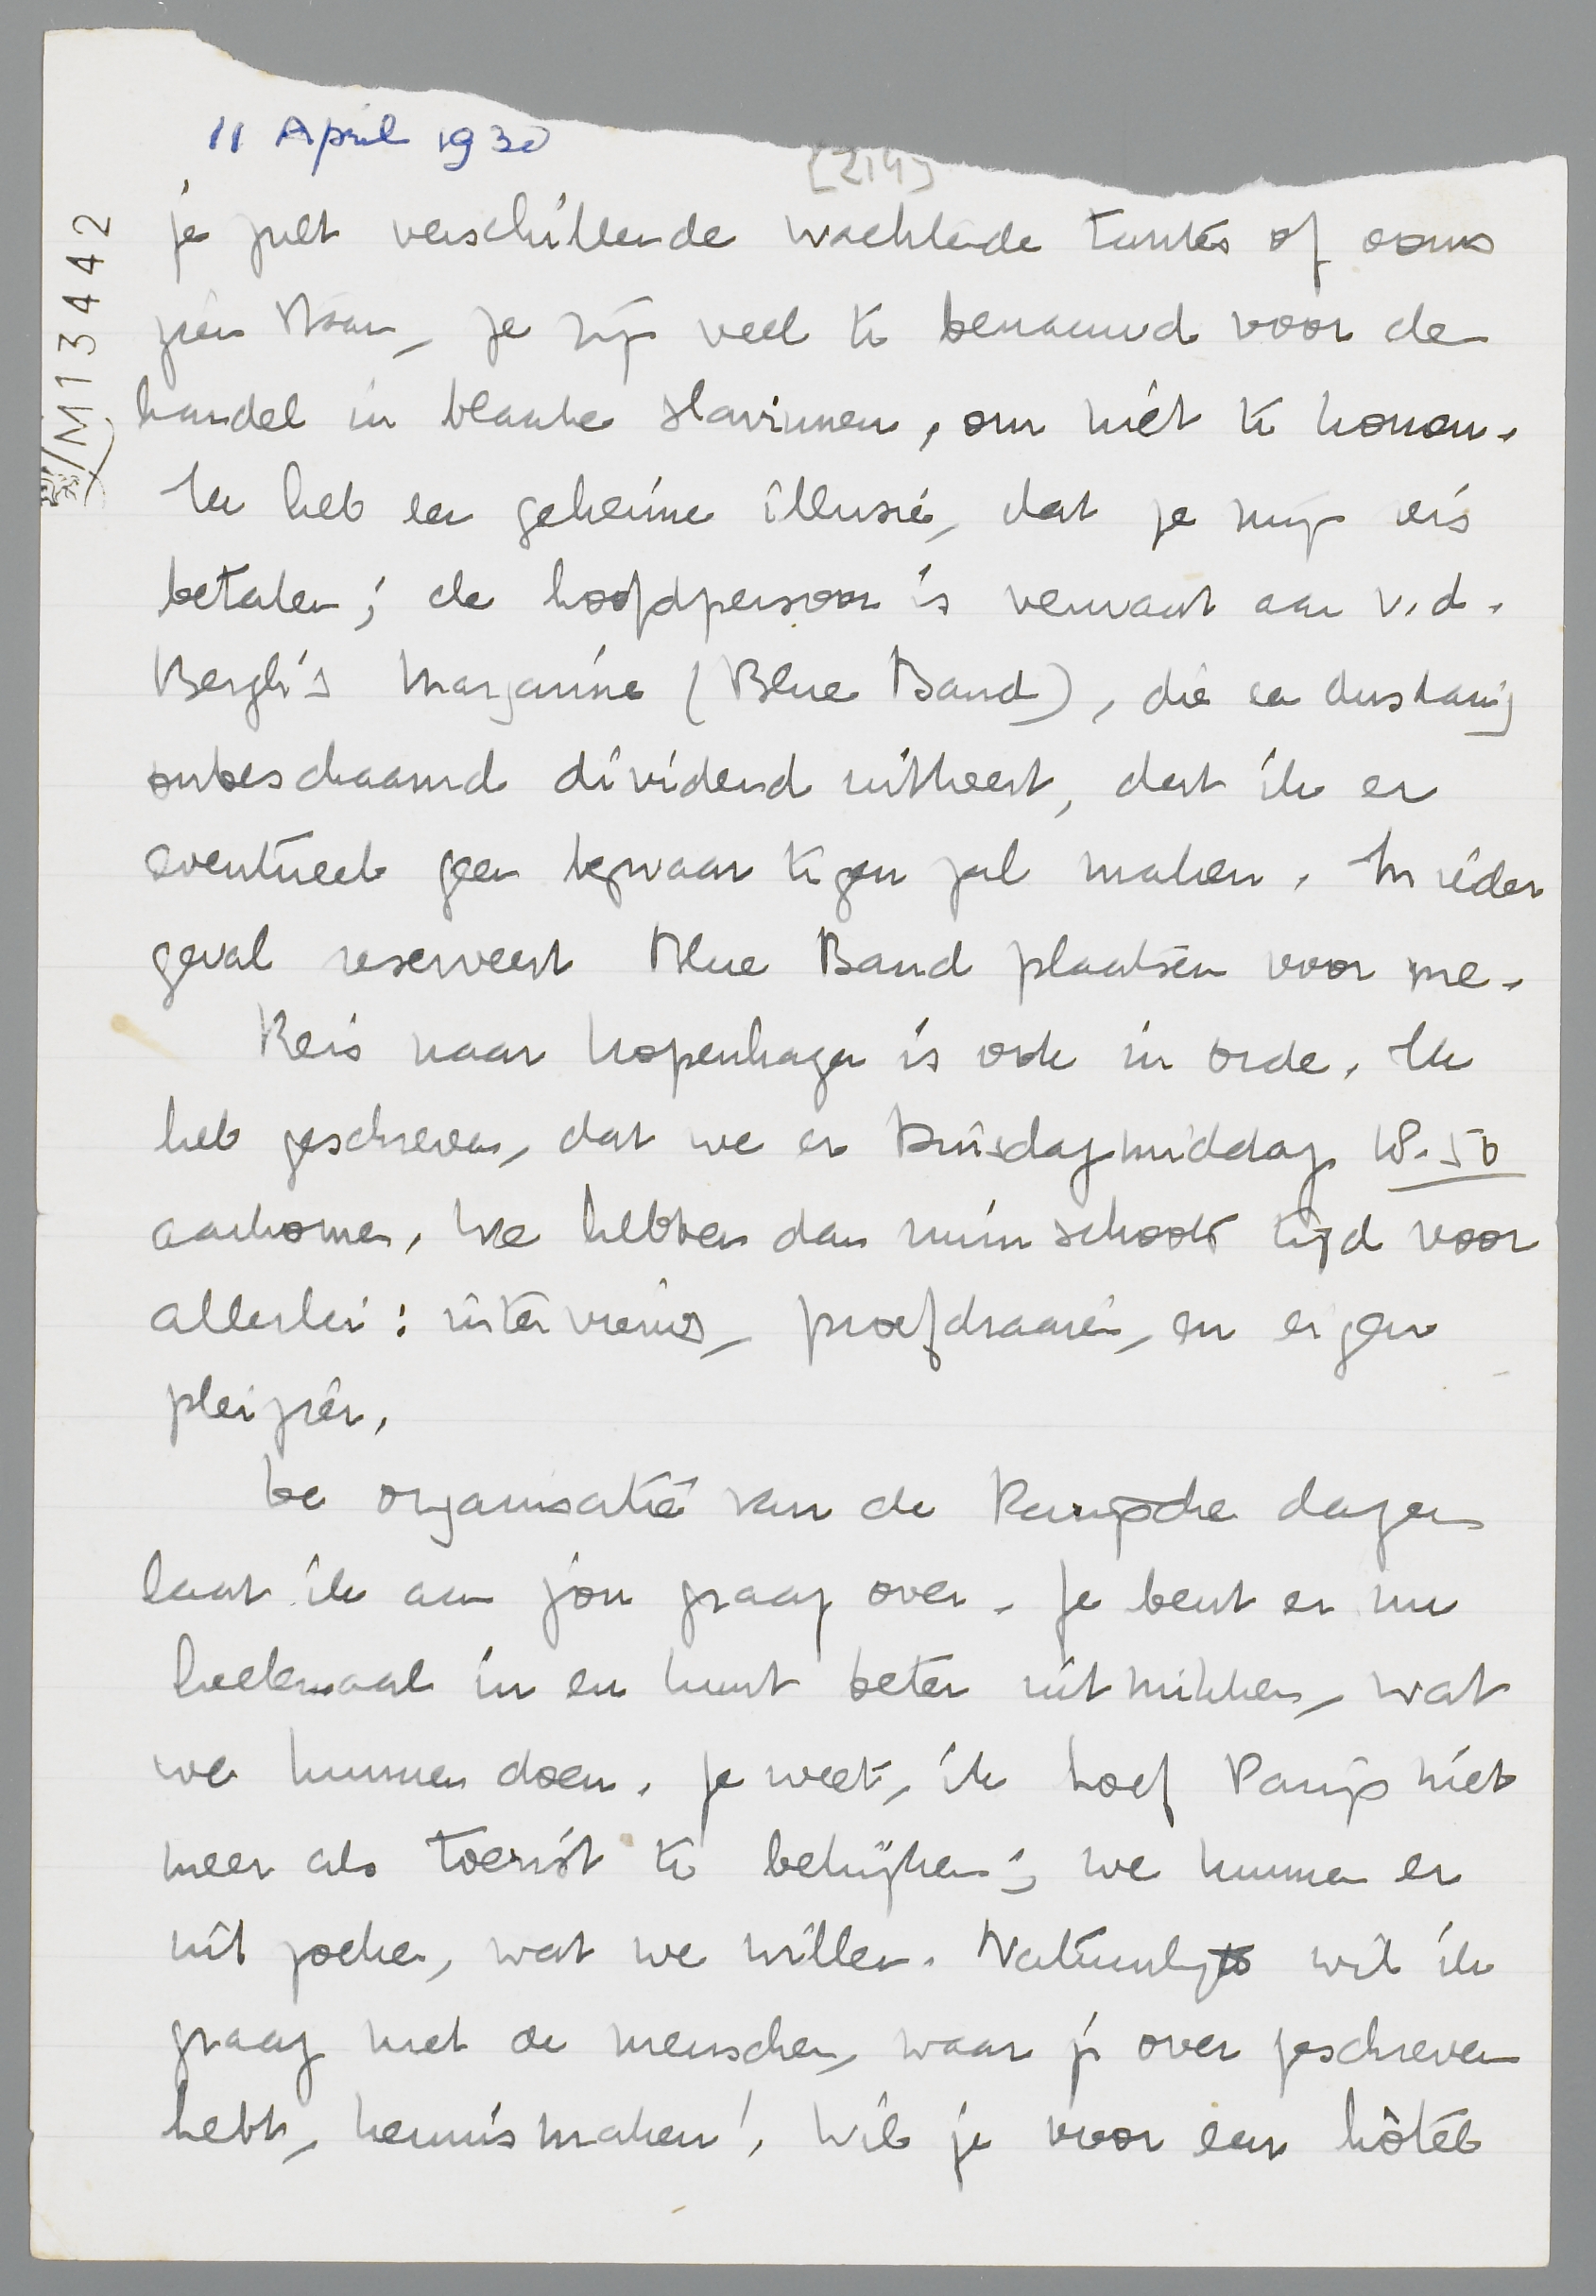 11 April 1930
[214]
M13442
je zult verschillende wachtende tantes of ooms
zien staan, ze zijn veel te benauwd voor de
handel in blanke slavinnen, om niet te komen.
Ik heb een geheime illusie, dat ze mijn reis
betalen; de hoofdpersoon is verwant aan v.d.
Bergh's Margarine (Blue Band), die een dusdanig
onbeschaamd dividend uitkeert, dat ik er
eventueel geen bezwaar tegen zal maken. In ieder
geval reserveert Blue Band plaatsen voor me.
Reis naar Kopenhagen is ook in orde. Ik
heb geschreven, dat we er Dinsdagmiddag 18.50
aankomen. We hebben dan ruimschoots tijd voor
allerlei: interviews, proefdraaien, en eigen
pleizier.
De organisatie van de Parijsche dagen
laat ik aan jou graag over. Je bent er nu
heelemaal in en kunt beter uitmikken, wat
we kunnen doen. Je weet, ik hoef Parijs niet
meer als toerist te bekijken; we kunnen er
uit zoeken, wat we willen. Natuurlijk wil ik
graag met de menschen, waar je over geschreven
hebt, kennismaken! Wil je voor een hôtel